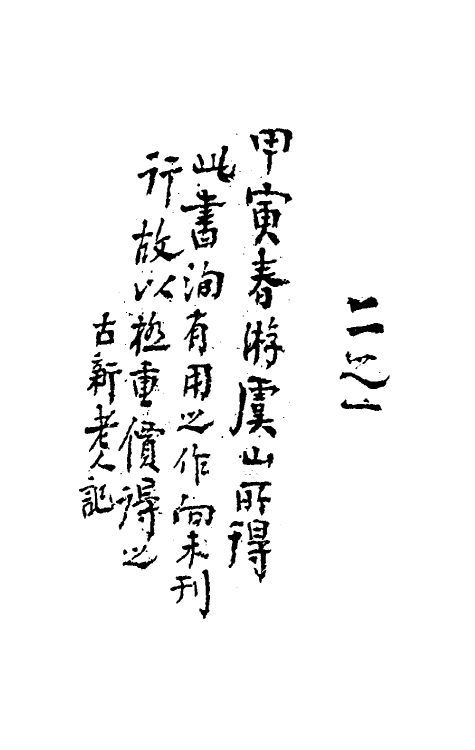 二之一
甲寅春游虞山所得
此書洵有用之作向未刊
行故以極重價得之
古新老人記